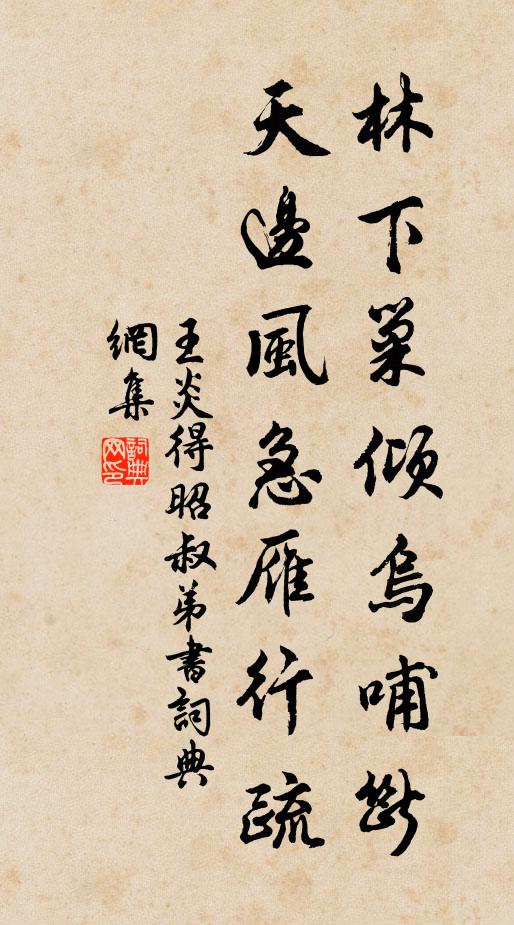 林下巢傾烏哺斷
天邊風急雁行疏
王炎得昭叔弟書詞典
網集
詞典網印